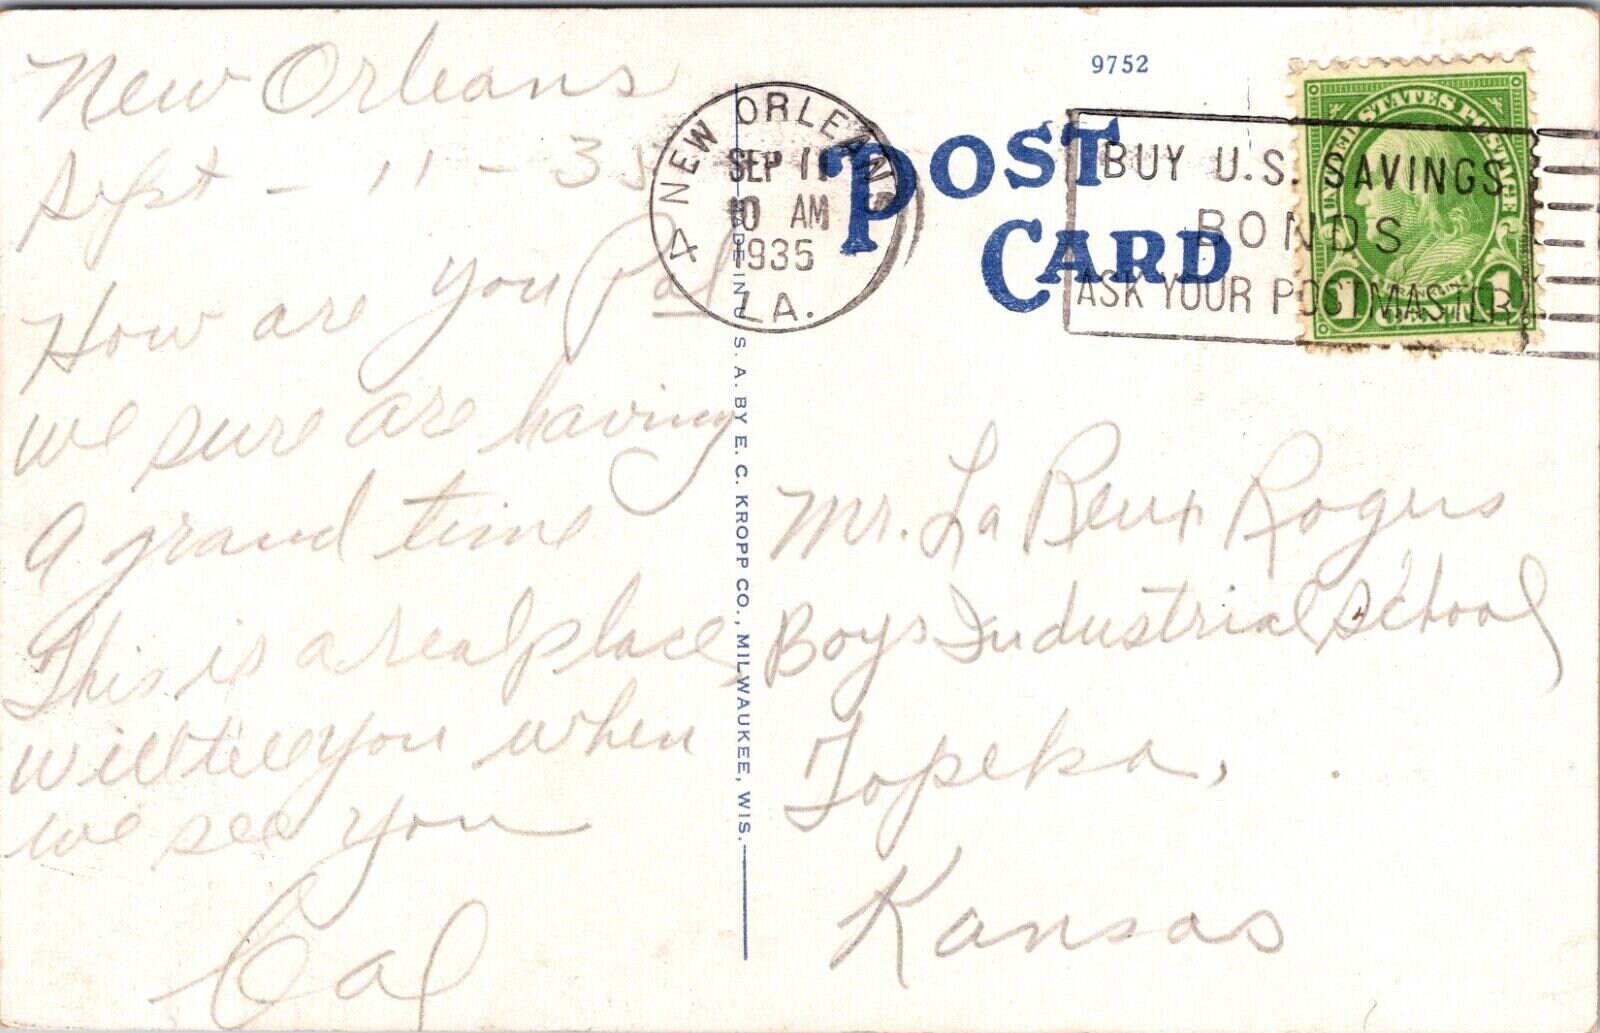 New Orleans
Sept - 11 - 35
How are you Pal
we sure are having
a grand time
This is a real place,
will tell you when
we see you
Cal
NEW ORLEANS
4
SEP 11
10 AM
1935
LA.
POST CARD
9752
BUY U.S. SAVINGS
BONDS
ASK YOUR POSTMASTER
UNITED STATES POSTAGE
1 1
MADE IN U. S. A. BY E. C. KROPP CO., MILWAUKEE, WIS.
Mr. La Reux Rogers
Boys Industrial School
Topeka,
Kansas